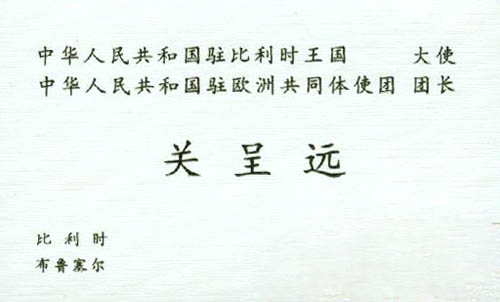 中华人民共和国驻比利时王国 大使
中华人民共和国驻欧洲共同体使团 团长
关呈远
比利时
布鲁塞尔